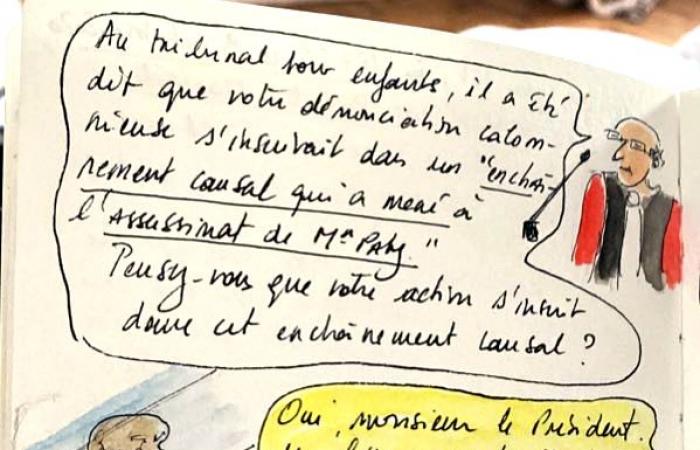 Au tribunal pour enfants, il a été
dit que votre dénonciation calom-
nieuse s'inscrivait dans un "enchaî-
nement causal qui a mené à
l'assassinat de Mr PATY."
Pensez-vous que votre action s'inscrit
dans cet enchaînement causal ?
Oui, monsieur le Président.